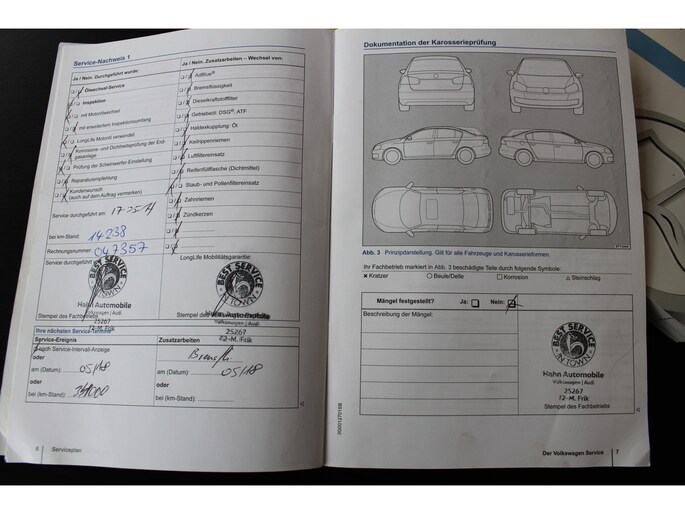 Service-Nachweis 1
Ja / Nein. Durchgeführt wurde:
Ölwechsel-Service
Inspektion
mit Motorölwechsel
mit erweitertem Inspektionsumfang
LongLife Motoröl verwendet
Korrosions- und Dichtheitsprüfung der Erdgasanlage
Prüfung der Scheinwerfer-Einstellung
Reparaturempfehlung
Kundenwunsch
(auch auf dem Auftrag vermerken)
Service durchgeführt am:
bei km-Stand: 14238
Rechnungsnummer: 047357
Service durchgeführt
BEST SERVICE IN TOWN
Hahn Automobile
Volkswagen | Audi
25267
12-M. Frik
Stempel des Fachbetriebs
Ja / Nein. Zusatzarbeiten – Wechsel von:
AdBlue®
Bremsflüssigkeit
Dieselkraftstofffilter
Getriebeöl: DSG®, ATF
Haldexkupplung: Öl
Keilrippenriemen
Luftfiltereinsatz
Reifenfüllflasche (Dichtmittel)
Staub- und Pollenfiltereinsatz
Zahnriemen
Zündkerzen
LongLife Mobilitätsgarantie:
BEST SERVICE IN TOWN
Hahn Automobile
Volkswagen | Audi
25267
12-M. Frik
Ihre nächsten Service-Termine
Service-Ereignis
nach Service-Intervall-Anzeige
oder
am (Datum): 05/18
oder
bei (km-Stand):
Zusatzarbeiten
am (Datum): 05/18
oder
bei (km-Stand):
6 Serviceplan
Dokumentation der Karosserieprüfung
Abb. 3 Prinzipdarstellung. Gilt für alle Fahrzeuge und Karosserieformen.
Ihr Fachbetrieb markiert in Abb. 3 beschädigte Teile durch folgende Symbole:
× Kratzer ○ Beule/Delle □ Korrosion △ Steinschlag
Mängel festgestellt? Ja: Nein:
Beschreibung der Mängel:
BEST SERVICE IN TOWN
Hahn Automobile
Volkswagen | Audi
25267
12-M. Frik
Stempel des Fachbetriebs
Der Volkswagen Service 7